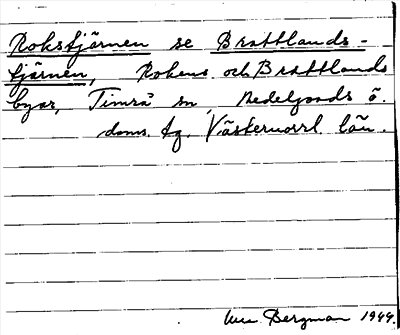 Rokstjärnen se Brattlands-
tjärnen, Rokens och Brattlands
byar, Timrå sn, Medelpads ö.
doms. tg. Västernorrl. län.
Bergman 1944.